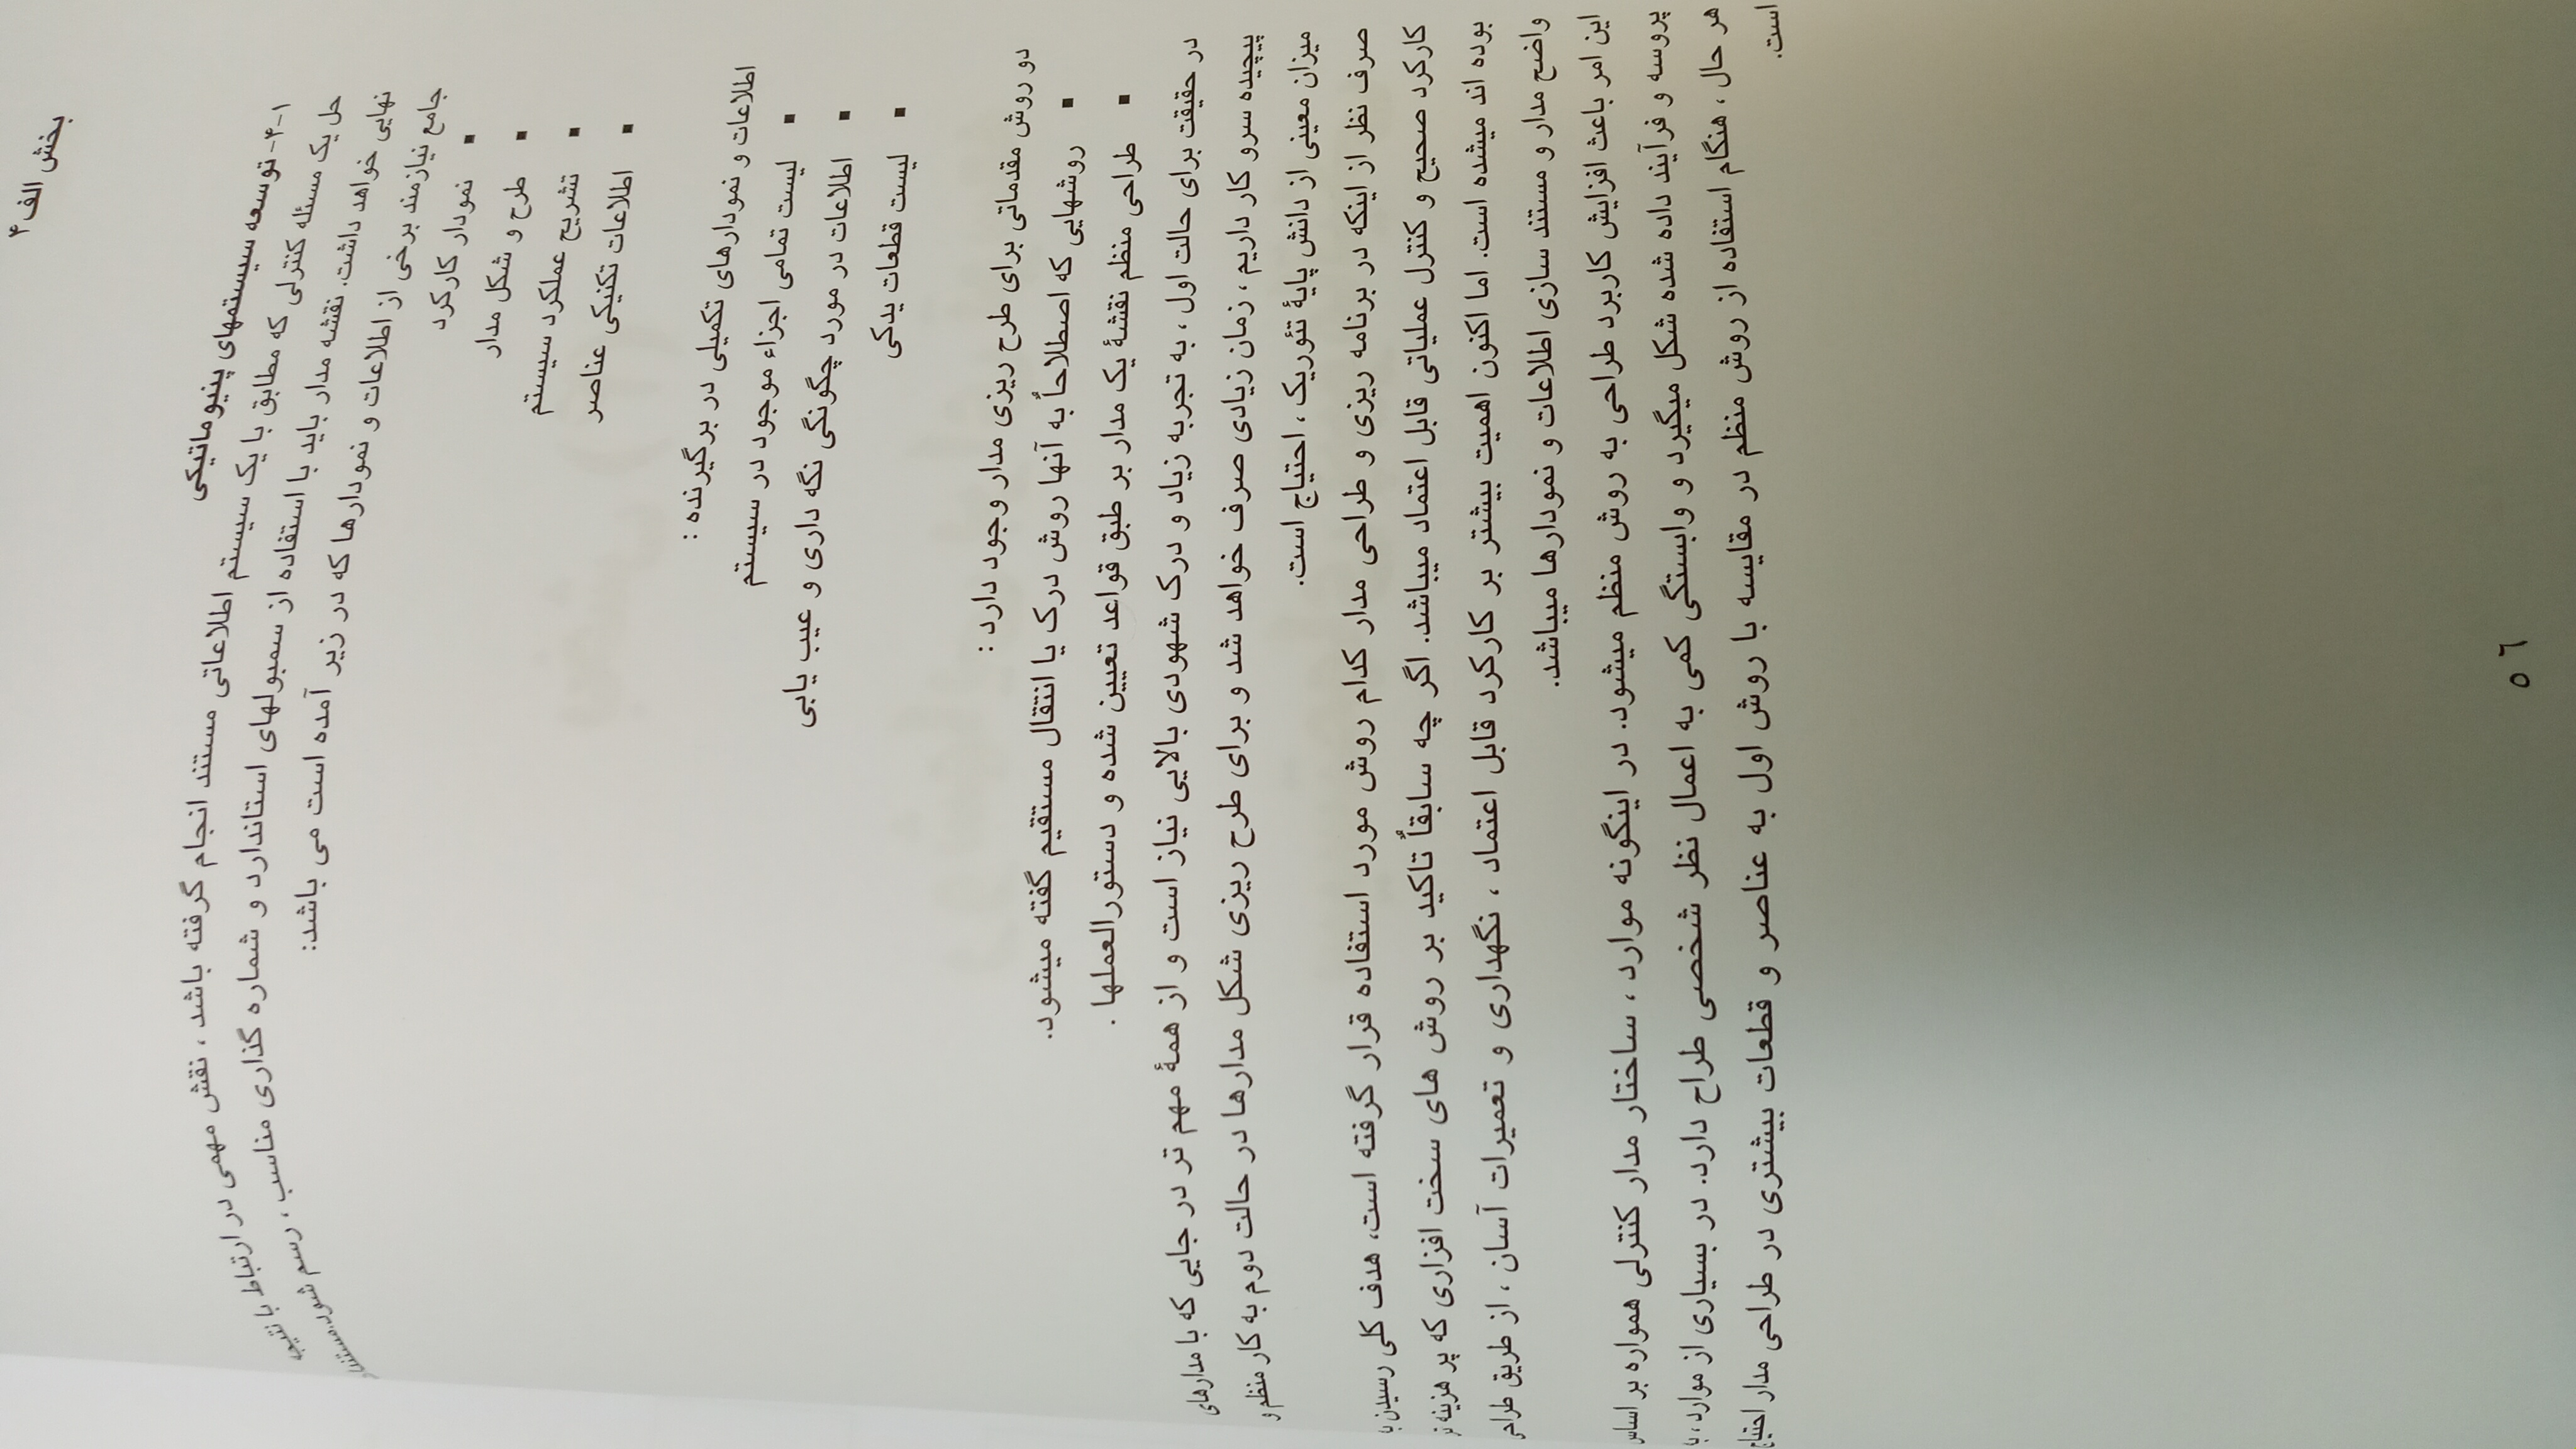 بخش الف ۴
۴-۱- توسعه سیستمهای پنیوماتیکی
حل یک مسئله کنترلی که مطابق با یک سیستم اطلاعاتی مستند انجام گرفته باشد ، نقش مهمی در ارتباط با نتیجه
نهایی خواهد داشت. نقشه مدار باید با استفاده از سمبولهای استاندارد و شماره گذاری مناسب ، رسم شود.
جامع نیازمند برخی از اطلاعات و نمودارها که در زیر آمده است می باشد:
▪ نمودار کارکرد
▪ طرح و شکل مدار
▪ تشریح عملکرد سیستم
▪ اطلاعات تکنیکی عناصر
اطلاعات و نمودارهای تکمیلی در برگیرنده :
▪ لیست تمامی اجزاء موجود در سیستم
▪ اطلاعات در مورد چگونگی نگه داری و عیب یابی
▪ لیست قطعات یدکی
دو روش مقدماتی برای طرح ریزی مدار وجود دارد :
▪ روشهایی که اصطلاحاً به آنها روش درک یا انتقال مستقیم گفته میشود.
▪ طراحی منظم نقشۀ یک مدار بر طبق قواعد تعیین شده و دستورالعملها .
در حقیقت برای حالت اول ، به تجربه زیاد و درک شهودی بالایی نیاز است و از همۀ مهم تر در جایی که با مدارهای
پیچیده سرو کار داریم ، زمان زیادی صرف خواهد شد و برای طرح ریزی شکل مدارها در حالت دوم به کار منظم و
میزان معینی از دانش پایۀ تئوریک ، احتیاج است.
صرف نظر از اینکه در برنامه ریزی و طراحی مدار کدام روش مورد استفاده قرار گرفته است، هدف کلی رسیدن
کارکرد صحیح و کنترل عملیاتی قابل اعتماد میباشد. اگر چه سابقاً تاکید بر روش های سخت افزاری که پر هزینه تر
بوده اند میشده است. اما اکنون اهمیت بیشتر بر کارکرد قابل اعتماد ، نگهداری و تعمیرات آسان ، از طریق طراحی
واضح مدار و مستند سازی اطلاعات و نمودارها میباشد.
این امر باعث افزایش کاربرد طراحی به روش منظم میشود. در اینگونه موارد ، ساختار مدار کنترلی همواره بر اساس
پروسه و فرآیند داده شده شکل میگیرد و وابستگی کمی به اعمال نظر شخصی طراح دارد. در بسیاری از موارد ،
هر حال ، هنگام استفاده از روش منظم در مقایسه با روش اول به عناصر و قطعات بیشتری در طراحی مدار احتیاج
است.
٥٦